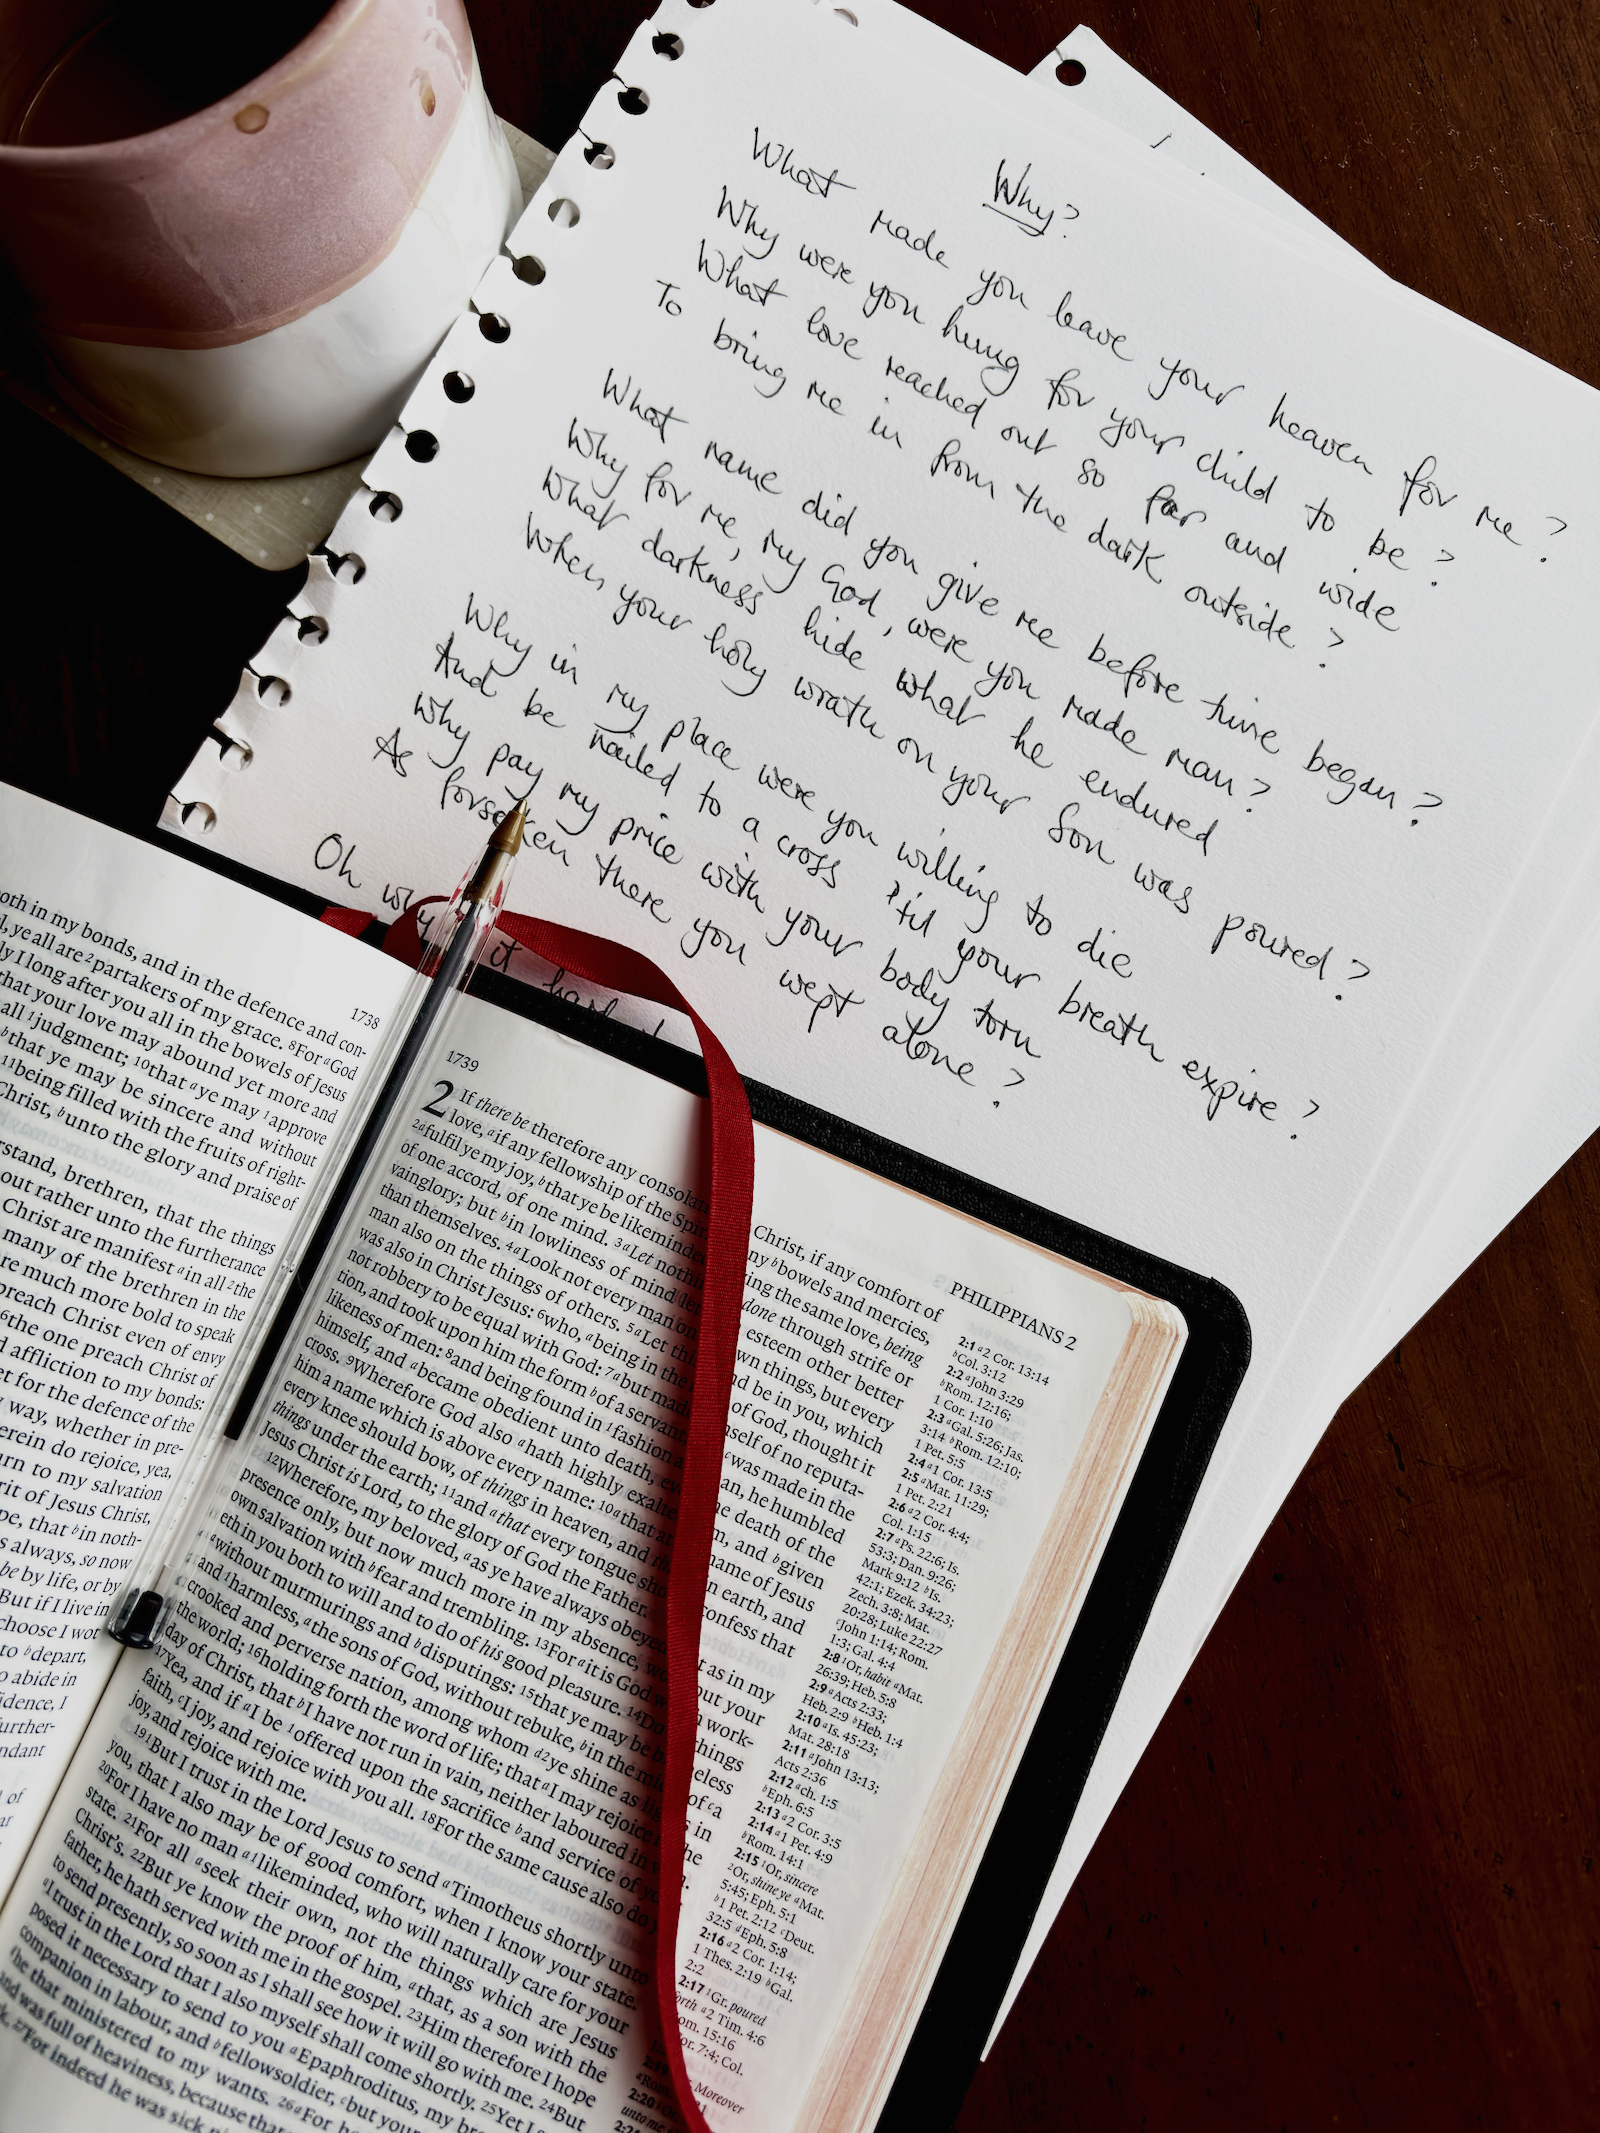 Why?
What made you leave your heaven for me?
Why were you hung for your child to be?
What love reached out so far and wide
To bring me in from the dark outside?
What name did you give me before time began?
Why for me, my God, were you made man?
What darkness hide what he endured
When your holy wrath on your Son was poured?
Why in my place were you willing to die
And be nailed to a cross 'til your breath expire?
Why pay my price with your body torn
As forsaken there you wept alone?
Oh why
1738
oth in my bonds, and in the defence and con-
ye all are ²partakers of my grace. ⁸For ᵃGod
ly I long after you all in the bowels of Jesus
that your love may abound yet more and
all ¹judgment; ¹⁰that ᵃye may ¹approve
ᵇthat ye may be sincere and without
¹¹being filled with the fruits of right-
Christ, ᵇunto the glory and praise of
rstand, brethren, that the things
out rather unto the furtherance
Christ are manifest ᵃin all ²the
many of the brethren in the
re much more bold to speak
preach Christ even of envy
⁶the one preach Christ of
affliction to my bonds:
et for the defence of the
way, whether in pre-
erein do rejoice, yea,
urn to my salvation
rit of Jesus Christ,
pe, that ᵇin noth-
s always, so now
be by life, or by
But if I live in
choose I wot
to ᵇdepart,
o abide in
idence, I
urther-
ndant
of
1739
PHILIPPIANS 2
2 If there be therefore any consolat Christ, if any comfort of
love, ᵃif any fellowship of the Spir ny ᵇbowels and mercies,
²ᵃfulfil ye my joy, ᵇthat ye be likeminded ing the same love, being
of one accord, of one mind. ³ᵃLet nothi done through strife or
vainglory; but ᵇin lowliness of mind let esteem other better
than themselves. ⁴ᵃLook not every man on wn things, but every
man also on the things of others. ⁵ᵃLet thi nd be in you, which
was also in Christ Jesus: ⁶who, ᵃbeing in the of God, thought it
not robbery to be equal with God: ⁷ᵃbut made mself of no reputa-
tion, and took upon him the form ᵇof a servant ᶜwas made in the
likeness of men: ⁸and being found in ¹fashion a an, he humbled
himself, and ᵃbecame obedient unto death, ev e death of the
cross. ⁹Wherefore God also ᵃhath highly exalte m, and ᵇgiven
him a name which is above every name: ¹⁰ᵃthat at name of Jesus
every knee should bow, of things in heaven, and th in earth, and
things under the earth; ¹¹and ᵃthat every tongue sho confess that
Jesus Christ is Lord, to the glory of God the Father.
¹²Wherefore, my beloved, ᵃas ye have always obeyed t as in my
presence only, but now much more in my absence, wo out your
own salvation with ᵇfear and trembling. ¹³For ᵃit is God w work-
eth in you both to will and to do of his good pleasure. ¹⁴Do things
ᵃwithout murmurings and ᵇdisputings: ¹⁵that ye may be b meless
and ¹harmless, ᵃthe sons of God, without rebuke, ᵇin the mi of ᶜa
crooked and perverse nation, among whom ᵈ²ye shine as lig s in
the world; ¹⁶holding forth the word of life; that ᵃI may rejoice he
day of Christ, that ᵇI have not run in vain, neither laboured in v
¹⁷Yea, and if ᵃI be ¹offered upon the sacrifice ᵇand service of yo
faith, ᶜI joy, and rejoice with you all. ¹⁸For the same cause also do y
joy, and rejoice with me.
¹⁹¹But I trust in the Lord Jesus to send ᵃTimotheus shortly unto
you, that I also may be of good comfort, when I know your state.
²⁰For I have no man ᵃ¹likeminded, who will naturally care for your
state. ²¹For all ᵃseek their own, not the things which are Jesus
Christ's. ²²But ye know the proof of him, ᵃthat, as a son with the
father, he hath served with me in the gospel. ²³Him therefore I hope
to send presently, so soon as I shall see how it will go with me. ²⁴But
ᵃI trust in the Lord that I also myself shall come shortly. ²⁵Yet I s
posed it necessary to send to you ᵃEpaphroditus, my bro
companion in labour, and ᵇfellowsoldier, ᶜbut your
he that ministered to my wants. ²⁶ᵃFor he
and was full of heaviness, because that
²⁷For indeed he was sick
2:1 ᵃ2 Cor. 13:14
ᵇCol. 3:12
2:2 ᵃJohn 3:29
ᵇRom. 12:16;
1 Cor. 1:10
2:3 ᵃGal. 5:26; Jas.
3:14 ᵇRom. 12:10;
1 Pet. 5:5
2:4 ᵃ1 Cor. 13:5
2:5 ᵃMat. 11:29;
1 Pet. 2:21
2:6 ᵃ2 Cor. 4:4;
Col. 1:15
2:7 ᵃPs. 22:6; Is.
53:3; Dan. 9:26;
Mark 9:12 ᵇIs.
42:1; Ezek. 34:23;
Zech. 3:8; Mat.
20:28; Luke 22:27
ᶜJohn 1:14; Rom.
1:3; Gal. 4:4
2:8 ¹Or, habit ᵃMat.
26:39; Heb. 5:8
2:9 ᵃActs 2:33;
Heb. 2:9 ᵇHeb. 1:4
2:10 ᵃIs. 45:23;
Mat. 28:18
2:11 ᵃJohn 13:13;
Acts 2:36
2:12 ᵃch. 1:5
ᵇEph. 6:5
2:13 ᵃ2 Cor. 3:5
2:14 ᵃ1 Pet. 4:9
ᵇRom. 14:1
2:15 ¹Or, sincere
²Or, shine ye ᵃMat.
5:45; Eph. 5:1
ᵇ1 Pet. 2:12 ᶜDeut.
32:5 ᵈEph. 5:8
2:16 ᵃ2 Cor. 1:14;
1 Thes. 2:19 ᵇGal.
2:2
2:17 ¹Gr. poured
forth ᵃ2 Tim. 4:6
om. 15:16
or. 7:4; Col.
Moreover
2:20
unto me